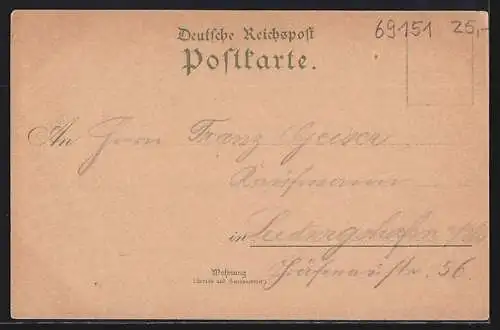 69151 25,-
Deutsche Reichspost
Postkarte.
An Herrn Franz Geiser
Kaufmann
in Ludwigshafen a/Rh
str. 56.
Wohnung
(Strasse und Hausnummer)